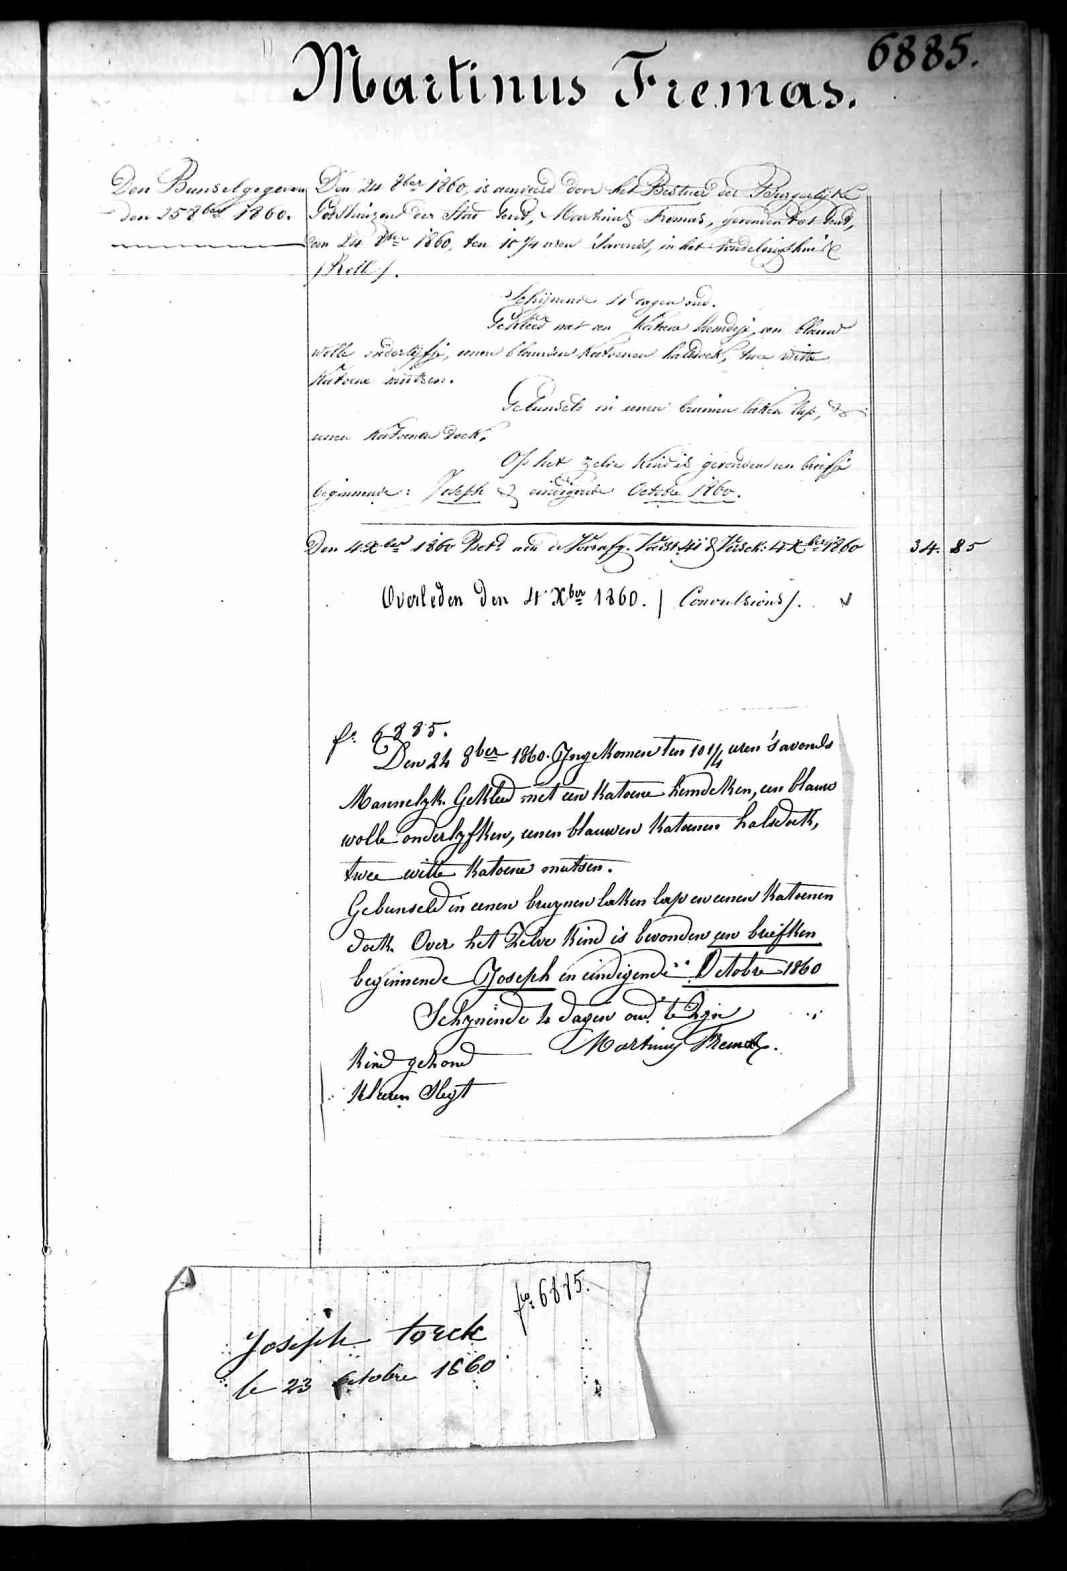 6885.
Martinus Fremas.
Den Bunsel gegeven
den 25 8ber 1860.
Den 24 8ber 1860, is aenveerd door het Bestuer der Burgerlyke
Godshuizen der Stad Gent, Martinus Fremas, gevonden tot Gent,
den 24 8ber 1860, ten 10 1/4 uren 'savonds, in het vondelingshuis
(Rolle).
Schijnende dagen oud.
Gekleed met een katoene hemdeje, een blauw
wolle onderlyfje, eenen blauwen katoenen halsdoek, twee witte
katoene mutsen.
Gebunseld in eenen bruinen laken lap, &
eenen katoenen doek.
Op het zelve kind is gevonden een briefje
beginnende: Joseph & eindigende Octobre 1860.
Den 4 Xber 1860 Betd aen de 4 Xber 1860 34. 85
Overleden den 4 Xber 1860. / Convulsions /.
fo. 6885.
Den 24 8ber 1860. Ingekomen ten 10 1/4 uren 'savonds
Mannelyk. Gekleed met een katoene hemdeken, een blauw
wolle onderlyfken, eenen blauwen katoenen halsdoek,
twee witte katoene mutsen.
Gebunseld in eenen bruynen laken lap en eenen katoenen
doek. Over het zelve kind is bevonden een briefken
beginnende Joseph en eindigende Octobre 1860
Schynende dagen oud te zyn
Martinus Fremas.
Kind gezond
Kleeren Slegt
fo. 6885.
Joseph torck
le 23 octobre 1860